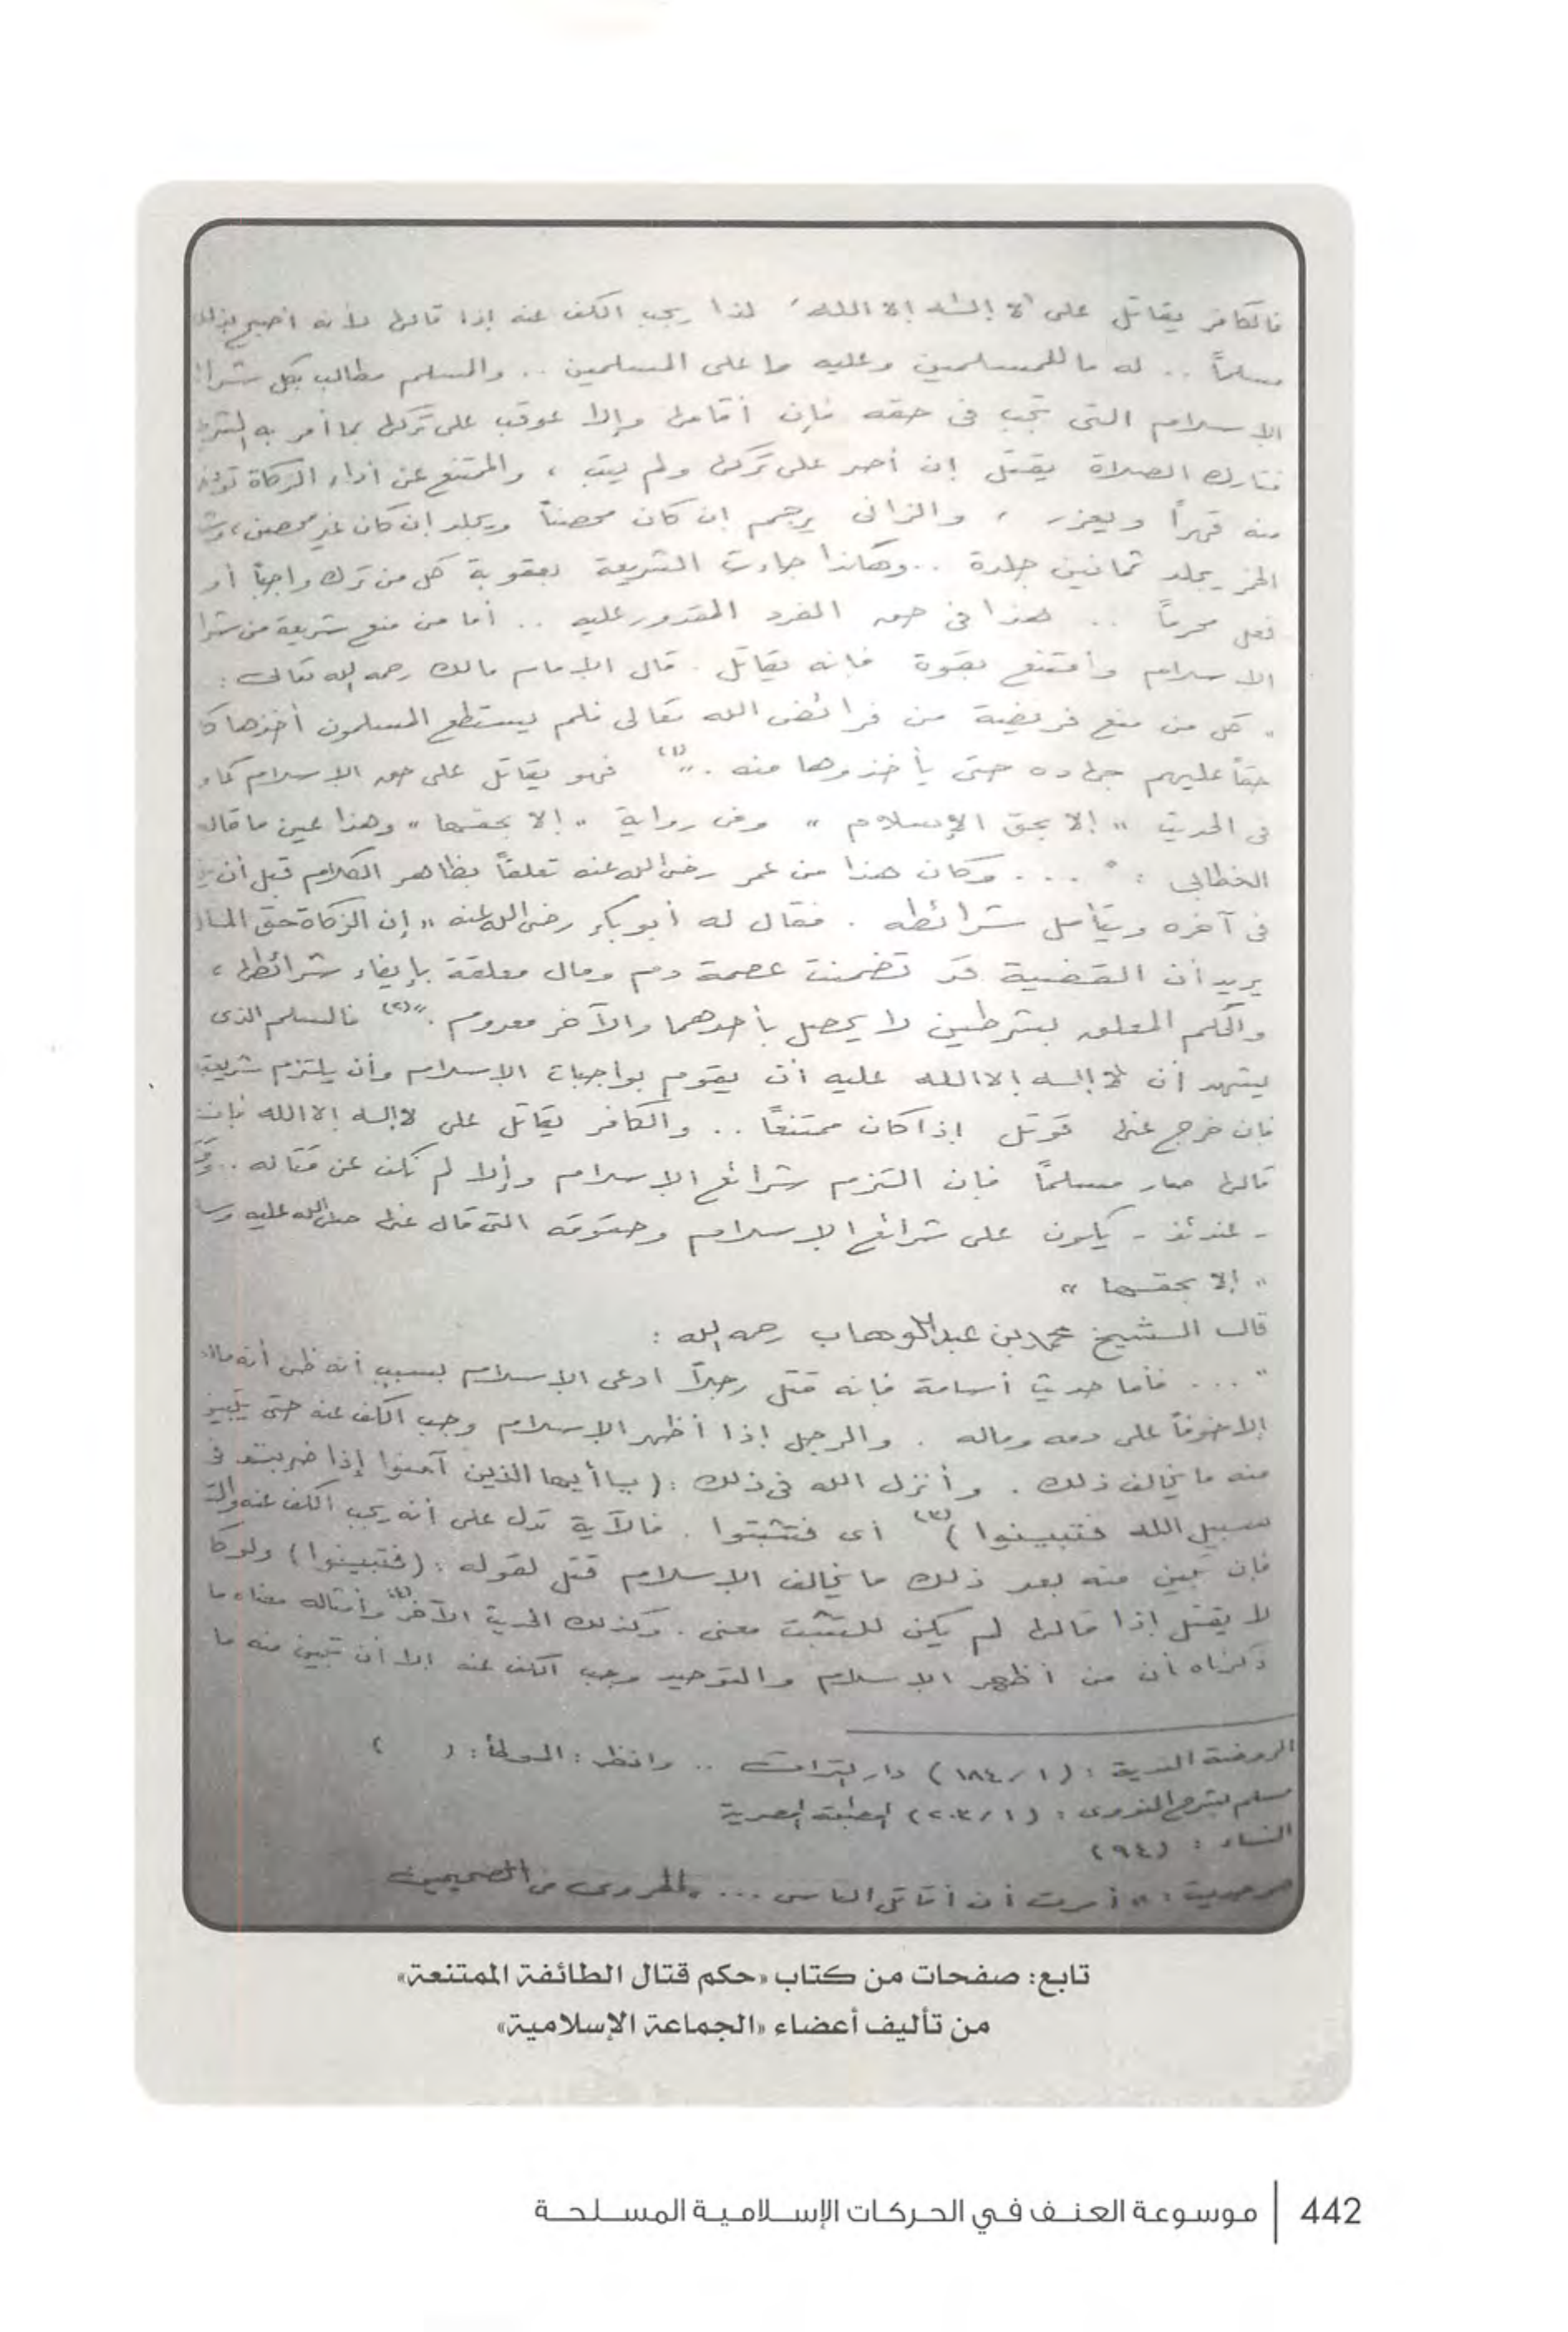 فالكافر يقاتل على "لا إله إلا الله" لذا يجب الكف عنه إذا قالها لأنه أصبح بذلك
مسلماً .. له ما للمسلمين وعليه ما على المسلمين .. والمسلم مطالب بكل
الإسلام التى تجب فى حقه فإن أقامها وإلا عوقب على تركها بما أمر به الشرع
فتارك الصلاة يقتل إن أصر على تركها ولم يتب ، والممتنع عن أداء الزكاة تؤخذ
منه قهراً ويعزر ، والزانى يرجم إن كان محصناً ويجلد إن كان غير محصن ،
الخمر يجلد ثمانين جلدة .. وهكذا جاءت الشريعة بعقوبة كل من ترك واجباً أو
فعل محرماً .. هذا فى حق الفرد المقدور عليه .. أما من منع شريعة من
الإسلام وامتنع بقوة فإنه يقاتل . قال الإمام مالك رحمه الله تعالى :
" كل من منع فريضة من فرائض الله تعالى فلم يستطع المسلمون أخذها
حقاً عليهم جهاده حتى يأخذوها منه . "(١) فهو يقاتل على حق الإسلام كما
فى الحديث " إلا بحق الإسلام " وفى رواية " إلا بحقها " وهذا عين ما قاله
الخطابى : " ... وكان هذا من عمر رضى الله عنه تعلقاً بظاهر الكلام قبل أن
فى آخره ويتأمل شرائطه . فقال له أبو بكر رضى الله عنه " إن الزكاة حق المال
يريد أن القضية قد تضمنت عصمة دم ومال معلقة بإيفاء شرائطها ،
والحكم المعلق بشرطين لا يحصل بأحدهما والآخر معدوم . "(٢) فالمسلم الذى
يشهد أن لا إله إلا الله عليه أن يقوم بواجبات الإسلام وأن يلتزم شريعته
فإن خرج عنها قوتل إذا كان ممتنعاً .. والكافر يقاتل على لا إله إلا الله فإن
قالها صار مسلماً فإن التزم شرائع الإسلام وإلا لم نكف عن قتاله ..
- عندئذ - يكون على شرائع الإسلام وحقوقه التى قال عنها صلى الله عليه
" إلا بحقها "
قال الشيخ محمد بن عبد الوهاب رحمه الله :
" ... فأما حديث أسامة فإنه قتل رجلاً ادعى الإسلام بسبب أنه ظن أنه
إلا خوفاً على دمه وماله . والرجل إذا أظهر الإسلام وجب الكف عنه حتى يتبين
منه ما يخالف ذلك . وأنزل الله فى ذلك : ( يا أيها الذين آمنوا إذا ضربتم فى
سبيل الله فتبينوا )(٣) أى فتثبتوا . فالآية تدل على أنه يجب الكف عنه
فإن تبين منه بعد ذلك ما يخالف الإسلام قتل لقوله : ( فتبينوا )
لا يقتل إذا قالها لم يكن للتثبت معنى . وكذلك الحديث الآخر(٤) وأمثاله معناه ما
ذكرناه أن من أظهر الإسلام والتوحيد وجب الكف عنه إلا أن تبين منه ما
الروضة الندية : ( ١ / ١٨٤ ) دار التراث .. وانظر : الموطأ : ( )
مسلم بشرح النووى : ( ١ / ٢٠٣ ) المطبعة المصرية
النساء : ( ٩٤ )
حديث : " أمرت أن أقاتل الناس ... " المروى فى الصحيحين
تابع: صفحات من كتاب «حكم قتال الطائفة الممتنعة»
من تأليف أعضاء «الجماعة الإسلامية»
442 | موسوعة العنف في الحركات الإسلامية المسلحة